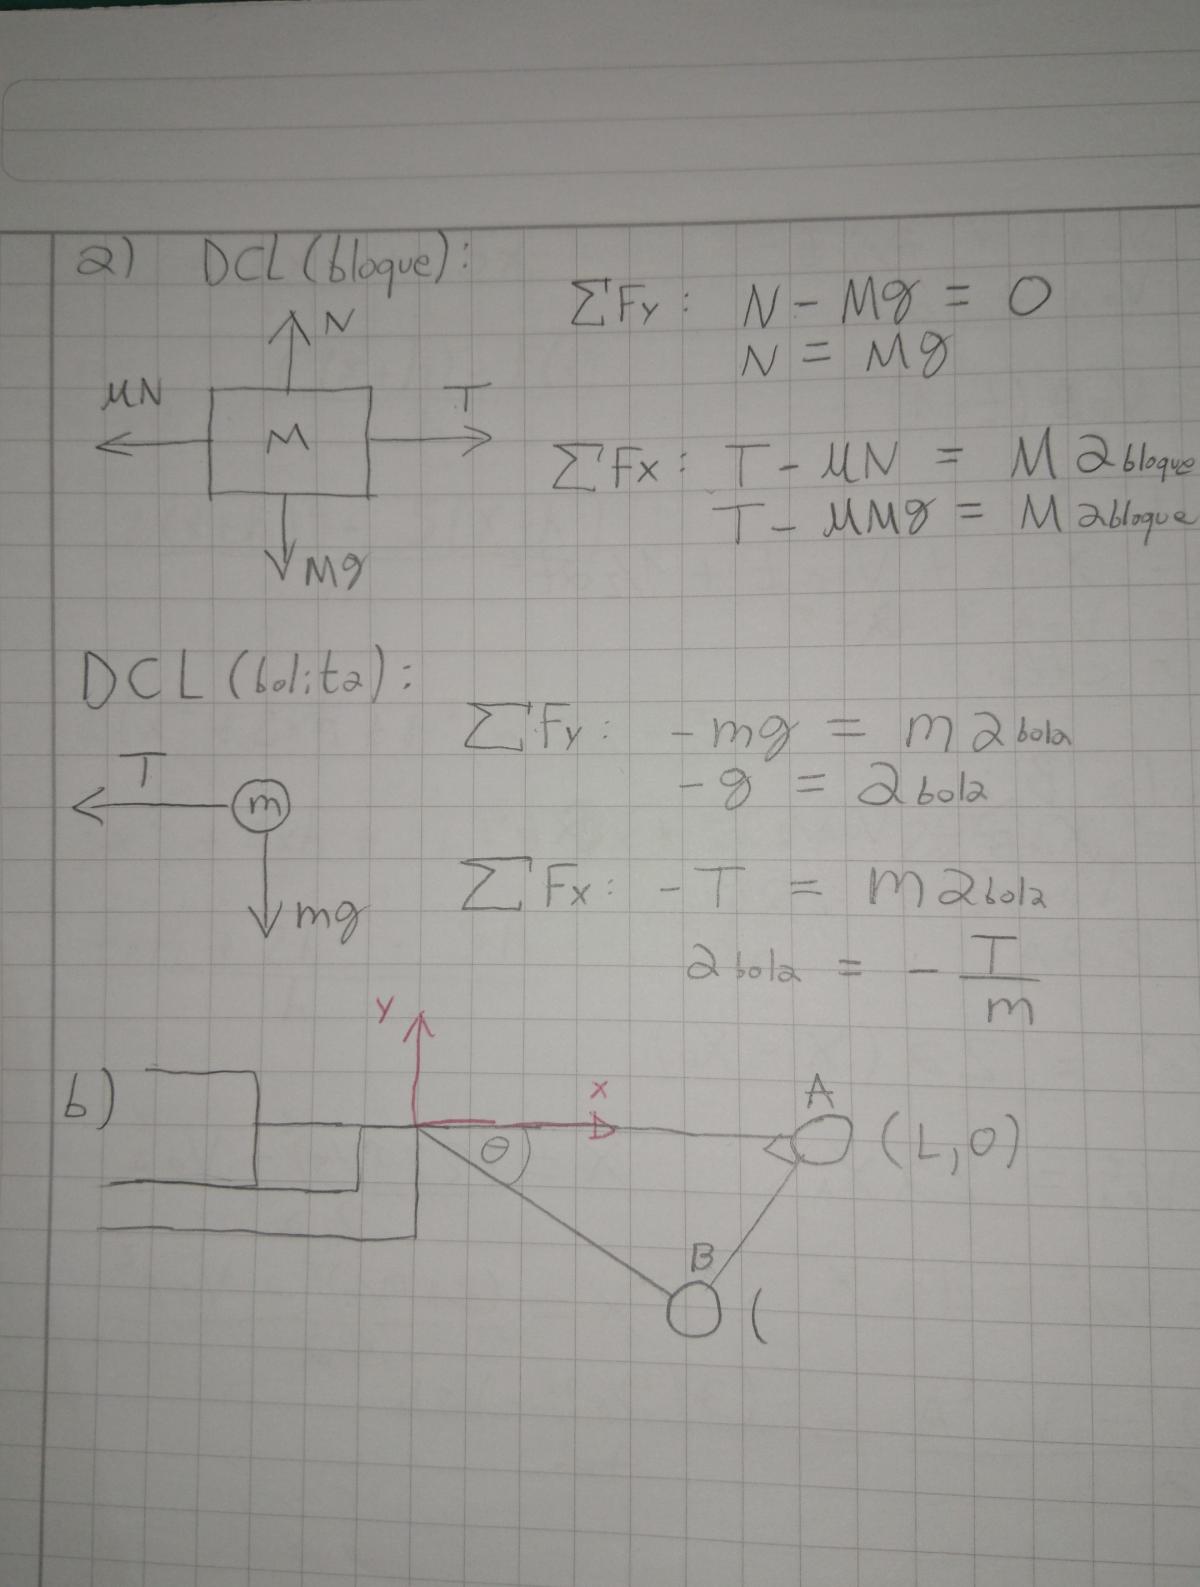 a) DCL (bloque):
N
μN
M
T
Mg
ΣFy: N - Mg = 0
N = Mg
ΣFx: T - μN = M abloque
T - μMg = M abloque
DCL (bolita):
T
m
mg
ΣFy: -mg = m abola
-g = abola
ΣFx: -T = m abola
abola = - T/m
b)
y
x
θ
A (L,0)
B (